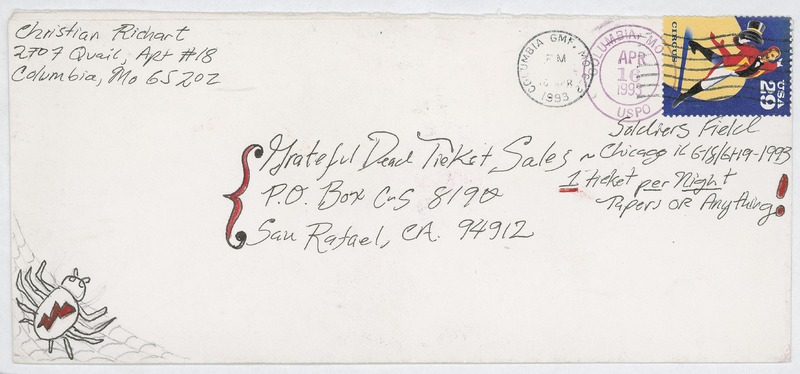 Christian Richart
2707 Quail, Apt #18
Columbia, Mo 65202
COLUMBIA GMF, MO
PM
16 APR
1993
COLUMBIA, MO
APR
16
1993
USPO
CIRCUS
USA
29
Grateful Dead Ticket Sales ~
P.O. Box CnS 8190
San Rafael, CA. 94912
Soldiers Field
Chicago IL 6-18/6-19-1993
1 ticket per Night
Tapers OR Anything!